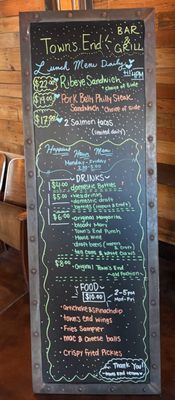 Town's End BAR & GRILL
Lunch Menu Daily till 4PM
$22.00 Ribeye Sandwich
+ choice of side
$19.00 Pork Belly Philly Steak
Sandwich + choice of side
$17.00 2 Salmon Tacos
(limited daily)
Happiest Hour Menu
Monday - Friday
2:00-5:00
DRINKS
$4.00 domestic Bottles
$5.00 wells drinks
domestic drafts
$6.00 original Margarita
Bloody Mary
Town's End Punch
House wine
draft beers
$8.00 Original Town's End
old fashion
FOOD
$10.00
2-5pm
Mon-Fri
Artichoke & Spinach dip
town's end wings
Fries Sampler
Mac & cheese balls
Crispy Fried Pickles
Thank You!!